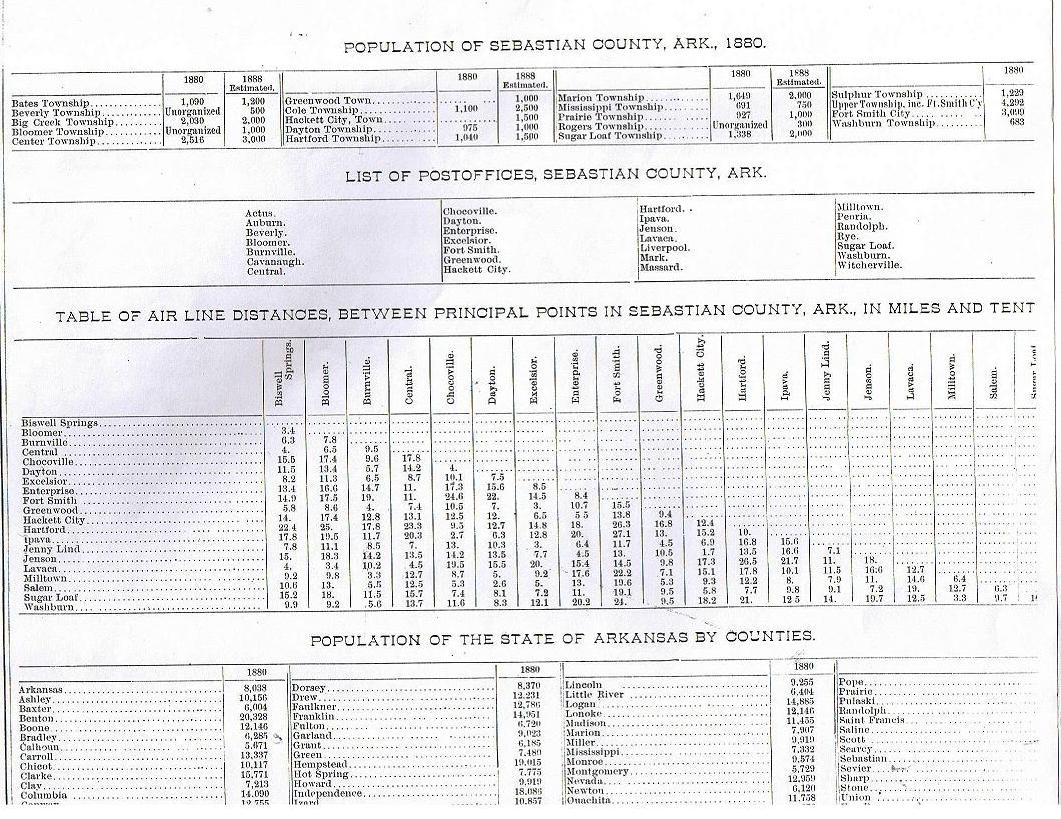 POPULATION OF SEBASTIAN COUNTY, ARK., 1880.
1880 1888 Estimated. 1880 1888 Estimated. 1880 1888 Estimated. 1880
Bates Township 1,090 1,200 Greenwood Town 1,000 Marion Township 1,649 2,000 Sulphur Township 1,229
Beverly Township Unorganized 500 Cole Township 1,100 2,500 Mississippi Township 691 750 Upper Township, inc. Ft. Smith C'y 4,292
Big Creek Township 2,030 2,000 Hackett City, Town 1,500 Prairie Township 927 1,000 Fort Smith City 3,099
Bloomer Township Unorganized 1,000 Dayton Township 975 1,000 Rogers Township Unorganized 300 Washburn Township 683
Center Township 2,516 3,000 Hartford Township 1,040 1,500 Sugar Loaf Township 1,338 2,000
LIST OF POSTOFFICES, SEBASTIAN COUNTY, ARK.
Actus. Chocoville. Hartford. Milltown.
Auburn. Dayton. Ipava. Peoria.
Beverly. Enterprise. Jenson. Randolph.
Bloomer. Excelsior. Lavaca. Rye.
Burnville. Fort Smith. Liverpool. Sugar Loaf.
Cavanaugh. Greenwood. Mark. Washburn.
Central. Hackett City. Massard. Witcherville.
TABLE OF AIR LINE DISTANCES, BETWEEN PRINCIPAL POINTS IN SEBASTIAN COUNTY, ARK., IN MILES AND TENT
Biswell Springs. Bloomer. Burnville. Central. Chocoville. Dayton. Excelsior. Enterprise. Fort Smith. Greenwood. Hackett City. Hartford. Ipava. Jenny Lind. Jenson. Lavaca. Milltown. Salem.
Biswell Springs
Bloomer 3.4
Burnville 6.3 7.8
Central 4. 6.5 9.5
Chocoville 15.5 17.4 9.6 17.8
Dayton 11.5 13.4 5.7 14.2 4.
Excelsior 8.2 11.3 6.5 8.7 10.1 7.5
Enterprise 13.4 16.6 14.7 11. 17.3 15.6 8.5
Fort Smith 14.9 17.5 19. 11. 24.6 22. 14.5 8.4
Greenwood 5.8 8.6 4. 7.4 10.5 7. 3. 10.7 15.5
Hackett City 14. 17.4 12.8 13.1 12.5 12. 6.5 5 5 13.8 9.4
Hartford 22.4 25. 17.8 23.3 9.5 12.7 14.8 18. 26.3 16.8 12.4
Ipava 17.8 19.5 11.7 20.3 2.7 6.3 12.8 20. 27.1 13. 15.2 10.
Jenny Lind 7.8 11.1 8.5 7. 13. 10.3 3. 6.4 11.7 4.5 6.9 16.8 15.6
Jenson 15. 18.3 14.2 13.5 14.2 13.5 7.7 4.5 13. 10.5 1.7 13.5 16.6 7.1
Lavaca 4. 3.4 10.2 4.5 19.5 15.5 20. 15.4 14.5 9.8 17.3 26.5 21.7 11. 18.
Milltown 9.2 9.8 3.3 12.7 8.7 5. 9.2 17.6 22.2 7.1 15.1 17.8 10.1 11.5 16.6 12.7
Salem 10.6 13. 5.5 12.5 5.3 2.6 5. 13. 19.6 5.3 9.3 12.2 8. 7.9 11. 14.6 6.4
Sugar Loaf 15.2 18. 11.5 15.7 7.4 8.1 7.2 11. 19.1 9.5 5.8 7.7 9.8 9.1 7.2 19. 12.7 6.3
Washburn 9.9 9.2 5.6 13.7 11.6 8.3 12.1 20.2 24. 9.5 18.2 21. 12 5 14. 19.7 12.5 3.3 9.7
POPULATION OF THE STATE OF ARKANSAS BY COUNTIES.
1880 1880 1880
Arkansas 8,038 Dorsey 8,370 Lincoln 9,255 Pope
Ashley 10,156 Drew 12,231 Little River 6,404 Prairie
Baxter 6,004 Faulkner 12,786 Logan 14,885 Pulaski
Benton 20,328 Franklin 14,951 Lonoke 12,146 Randolph
Boone 12,146 Fulton 6,720 Madison 11,455 Saint Francis
Bradley 6,285 Garland 9,023 Marion 7,907 Saline
Calhoun 5,671 Grant 6,185 Miller 9,919 Scott
Carroll 13,337 Green 7,480 Mississippi 7,332 Searcy
Chicot 10,117 Hempstead 19,015 Monroe 9,574 Sebastian
Clarke 15,771 Hot Spring 7,775 Montgomery 5,729 Sevier
Clay 7,213 Howard 9,919 Nevada 12,959 Sharp
Columbia 14,090 Independence 18,086 Newton 6,120 Stone
12,755 Izard 10,857 Ouachita 11,758 Union